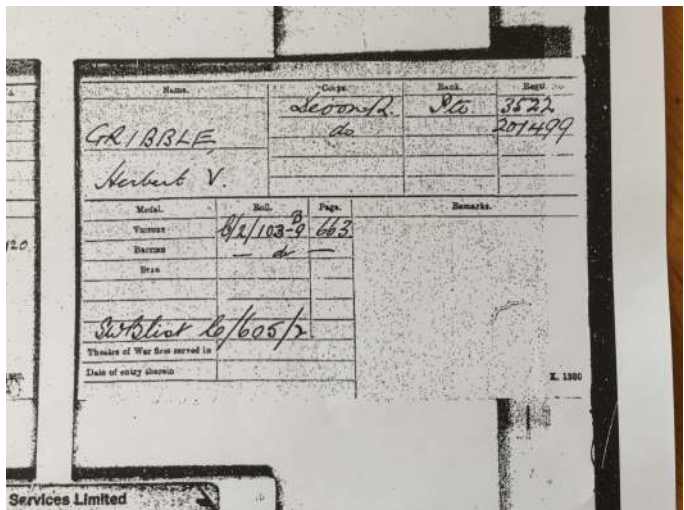 Name. Corps. Rank. Regtl. No.
Devon R. Pte. 3522
GRIBBLE, do 201499
Herbert V.
Medal. Roll. Page. Remarks.
VICTORY B/2/103-B9 663
BRITISH — do —
STAR
SWB List B/605/2
Theatre of War first served in
Date of entry therein
K. 1380
120
Services Limited